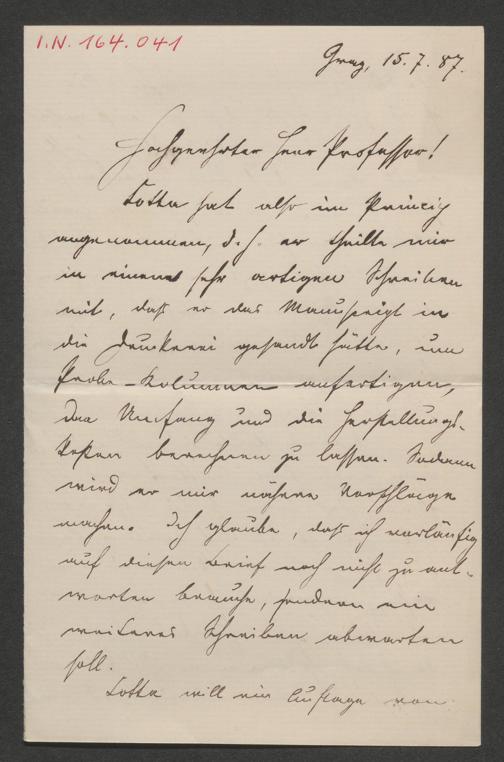 I.N. 164.041
Graz, 15.7.87.
Hochgeehrter Herr Professor!
Cotta hat also im Princip
angenommen, d.h. er theilte mir
in einem sehr artigen Schreiben
mit, daß er das Manuscript in
die Druckerei gesandt hätte, um
Probe-Kolumnen anfertigen,
den Umfang und die Herstellungs-
kosten berechnen zu lassen. Sodann
wird er mir nähere Vorschläge
machen. Ich glaube, daß ich vorläufig
auf diesen Brief noch nicht zu ant-
worten brauche, sondern ein
weiteres Schreiben abwarten
soll.
Cotta will eine Auflage von